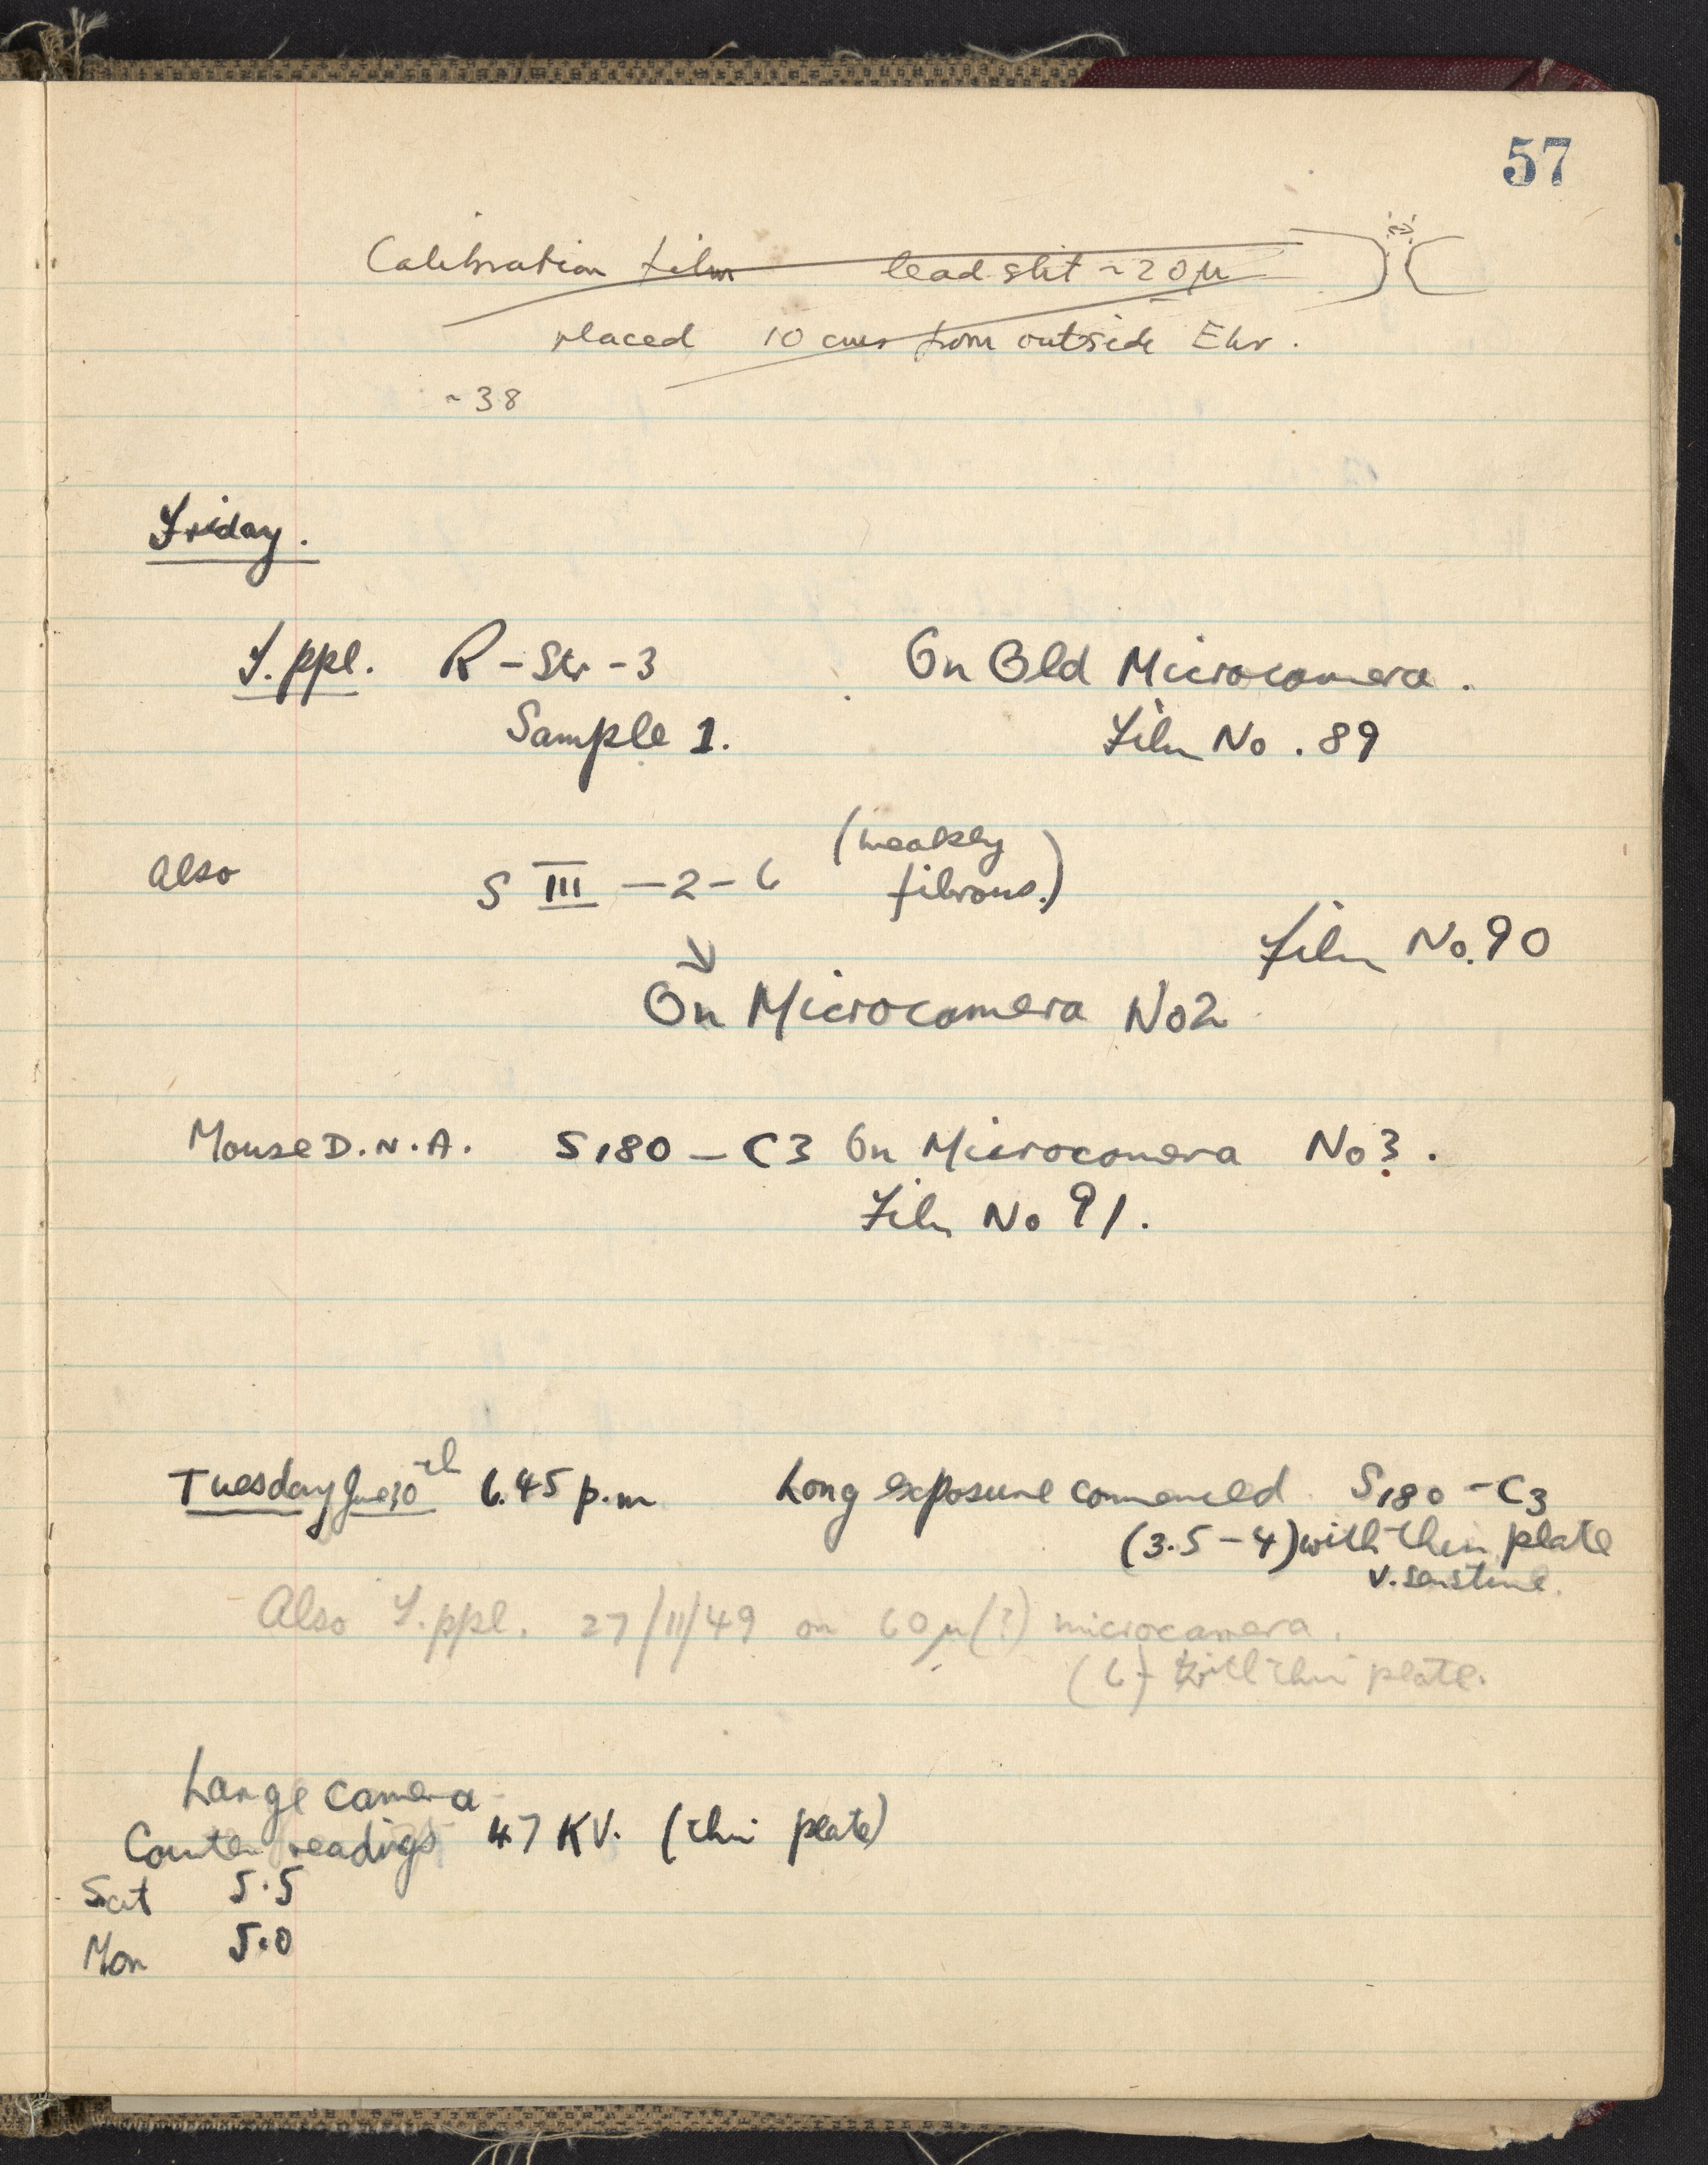 57
Calibration film lead slit ~20μ
placed 10 cms from outside Ehr.
~38
Friday.
T.ppl. R-Str-3 On Old Microcamera.
Sample 1. Film No. 89
Also S III -2-6 (weakly
fibrous.)
Film No. 90
On Microcamera No2
Mouse D.N.A. S180 - C3 On Microcamera No 3.
Film No 91.
Tuesday 6.45 p.m Long exposure commenced S180 - C3
(3.5 - 4) with thin plate
v. sensitive.
Also T.ppl. 27/11/49 on 60μ(?) microcamera.
(6) with thin plate.
Large camera
Counter readings 47 KV. (thin plate)
Sat 5.5
Mon 5.0